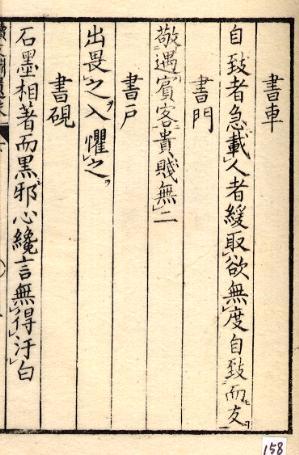 書車
自致者急載人者緩取欲無度自致而反
書門
敬遇賓客貴賤無二
書戶
出畏之入懼之
書硯
石墨相著而黒邪心纔言無得汙白
158